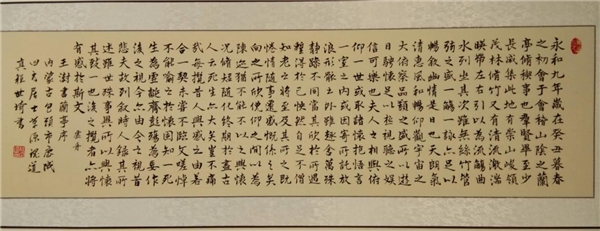 永和九年歲在癸丑暮春
之初會于會稽山陰之蘭
亭脩稧事也羣賢畢至少
長咸集此地有崇山峻領
茂林脩竹又有清流激湍
映帶左右引以為流觴曲
水列坐其次雖無絲竹管
弦之盛一觴一詠亦足以
暢敘幽情是日也天朗氣
清惠風和暢仰觀宇宙之
大俯察品類之盛所以遊
目騁懷足以極視聽之娛
信可樂也夫人之相與俯
仰一世或取諸懷抱悟言
一室之內或因寄所託放
浪形骸之外雖趣舍萬殊
靜躁不同當其欣於所遇
暫得於己怏然自足不僧
知老之將至及其所之既
惓情隨事遷感慨係之矣
向之所欣俛仰之間以為
陳迹猶不能不以之興懷
況脩短隨化終期於盡古
人云死生亦大矣豈不痛
哉每攬昔人興感之由若
合一契未嘗不臨文嗟悼
不能喻之於懷固知一死
生為虛誕齊彭殤為妄作
後之視今亦由今之視昔
悲夫故列敘時人錄其所
述雖世殊事異所以興懷
其致一也後之攬者亦將
有感於斯文
王澍書蘭亭序
內蒙古包頭市唐城
居士
真程世琦書